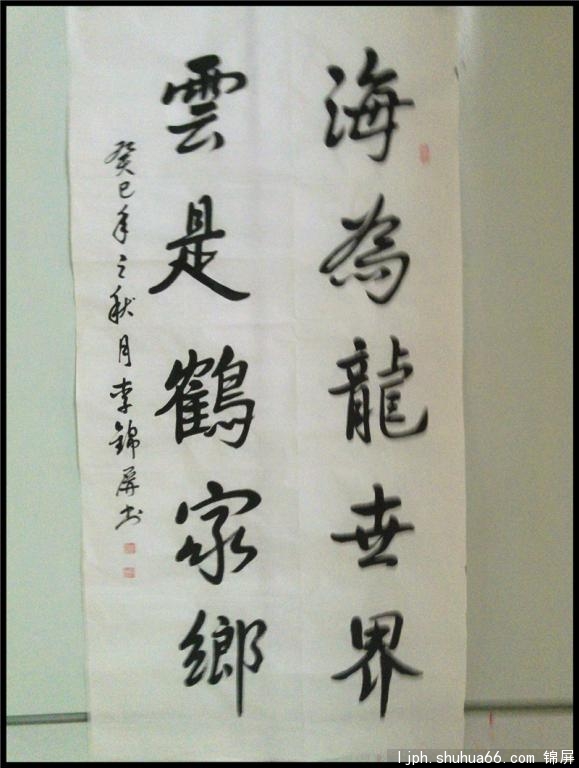 海為龍世界
雲是鶴家鄉
癸巳年之秋月李錦屏书
ljph.shuhua66.com 锦屏